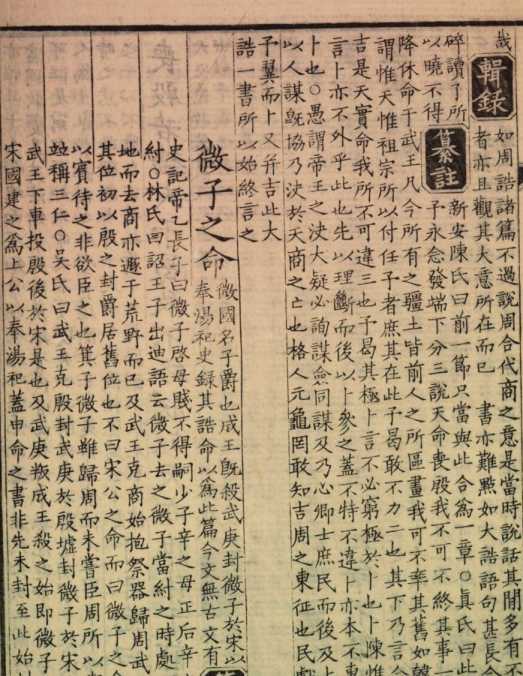 哉
輯錄
如周誥諸篇不過說周合代商之意是當時說話其閒多有不
者亦且觀其大意所在而已　書亦難點如大誥語句甚長今
碎讀了所
以曉不得
纂註
新安陳氏曰前一節只當與此合爲一章○眞氏曰此
予永念發端下分三說天命喪殷我不可不終其事一
降休命于武王凡今所有之疆土皆前人之所區畫我可不率其舊如
謂惟天惟祖宗所以付任予者庶其在此予曷敢不力二也其下乃言今
吉是天實命我所不可違三也予曷其極卜言不必窮極於卜也卜陳惟
言卜亦不外乎此也先以理斷而後以卜參之蓋不特不違卜亦本不
卜也○愚謂帝王之決大疑必詢謀僉同謀及乃心卿士庶民而後及
以人謀旣協乃決於天商之亡也格人元龜罔敢知吉周之東征也民
予翼而卜又幷吉此大
誥一書所以始終言之
微子之命
微國名子爵也成王旣殺武庚封微子於宋以
奉湯祀史錄其誥命以爲此篇今文無古文有
史記帝乙長子曰微子啓母賤不得嗣少子辛之母正后辛
紂○林氏曰詔王子出迪語云微子去之微子當紂之時處
地而去商亦遯于荒野而已及武王克商始抱祭器歸周武
其位初以殷之封爵居舊位也不曰宋公之命而曰微子之
以賓待之非欲臣之也箕子微子雖歸周而未嘗臣周所以
竝稱三仁○吳氏曰武王克殷封武庚於殷墟封微子於宋
武王下車投殷後於宋是也及武庚叛成王殺之始卽微子
宋國建之爲上公以奉湯祀蓋申命之書非先未封至此始